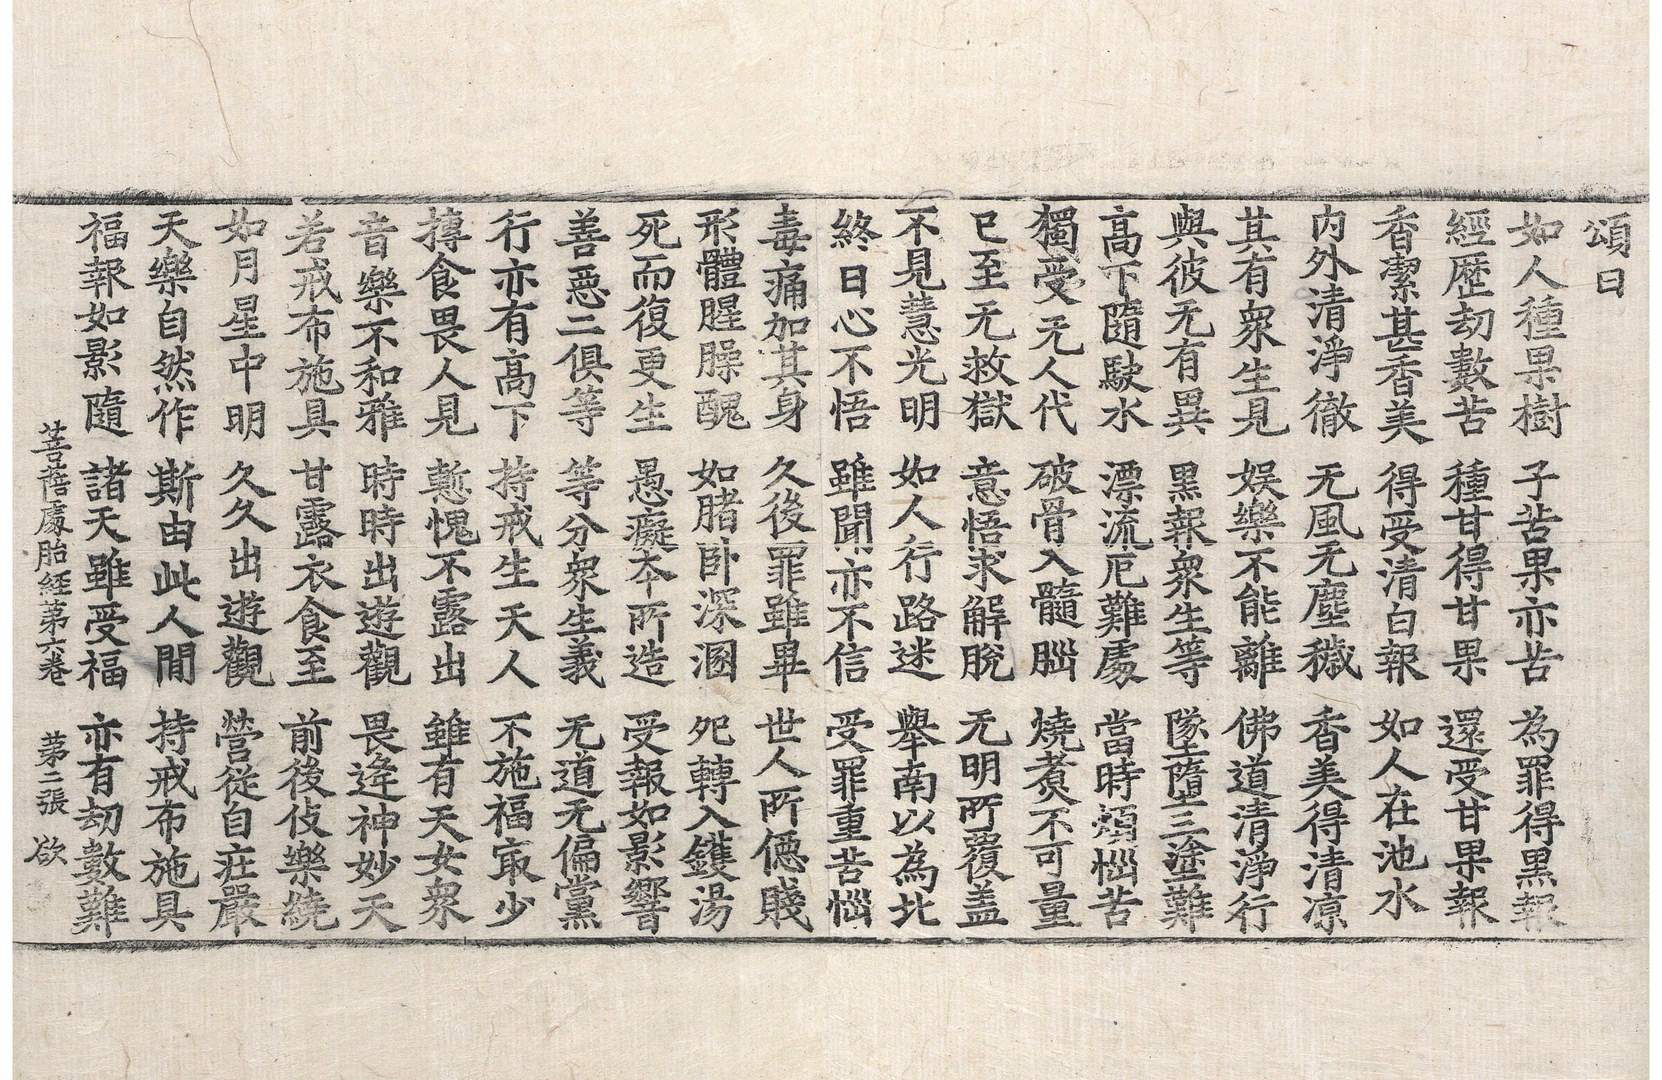 頌曰
如人種果樹 子苦果亦苦 為罪得黑報
經歷劫數苦 種甘得甘果 還受甘果報
香潔甚香美 得受清白報 如人在池水
内外清淨徹 无風无塵穢 香美得清凉
其有衆生見 娛樂不能離 佛道清淨行
與彼无有異 黑報衆生等 墜墮三塗難
高下隨駛水 漂流厄難處 當時煩惱苦
獨受无人代 破骨入髓腦 燒煑不可量
已至无救獄 意悟求解脫 无明所覆盖
不見慧光明 如人行路迷 舉南以為北
終日心不悟 雖聞亦不信 受罪重苦惱
毒痛加其身 久後罪雖畢 世人所僫賤
形體腥臊醜 如賭卧深溷 死轉入鑊湯
死而復更生 愚癡夲所造 受報如影響
善惡二俱等 等分衆生義 无道无偏黨
行亦有高下 持戒生天人 不施福㝡少
摶食畏人見 慙愧不露出 雖有天女衆
音樂不和雅 時時出遊觀 畏逢神妙天
若戒布施具 甘露衣食至 前後伎樂繞
如月星中明 久久出遊觀 營從自莊嚴
天樂自然作 斯由此人間 持戒布施具
福報如影隨 諸天雖受福 亦有劫數難
菩薩處胎經第六卷 第二張 欲